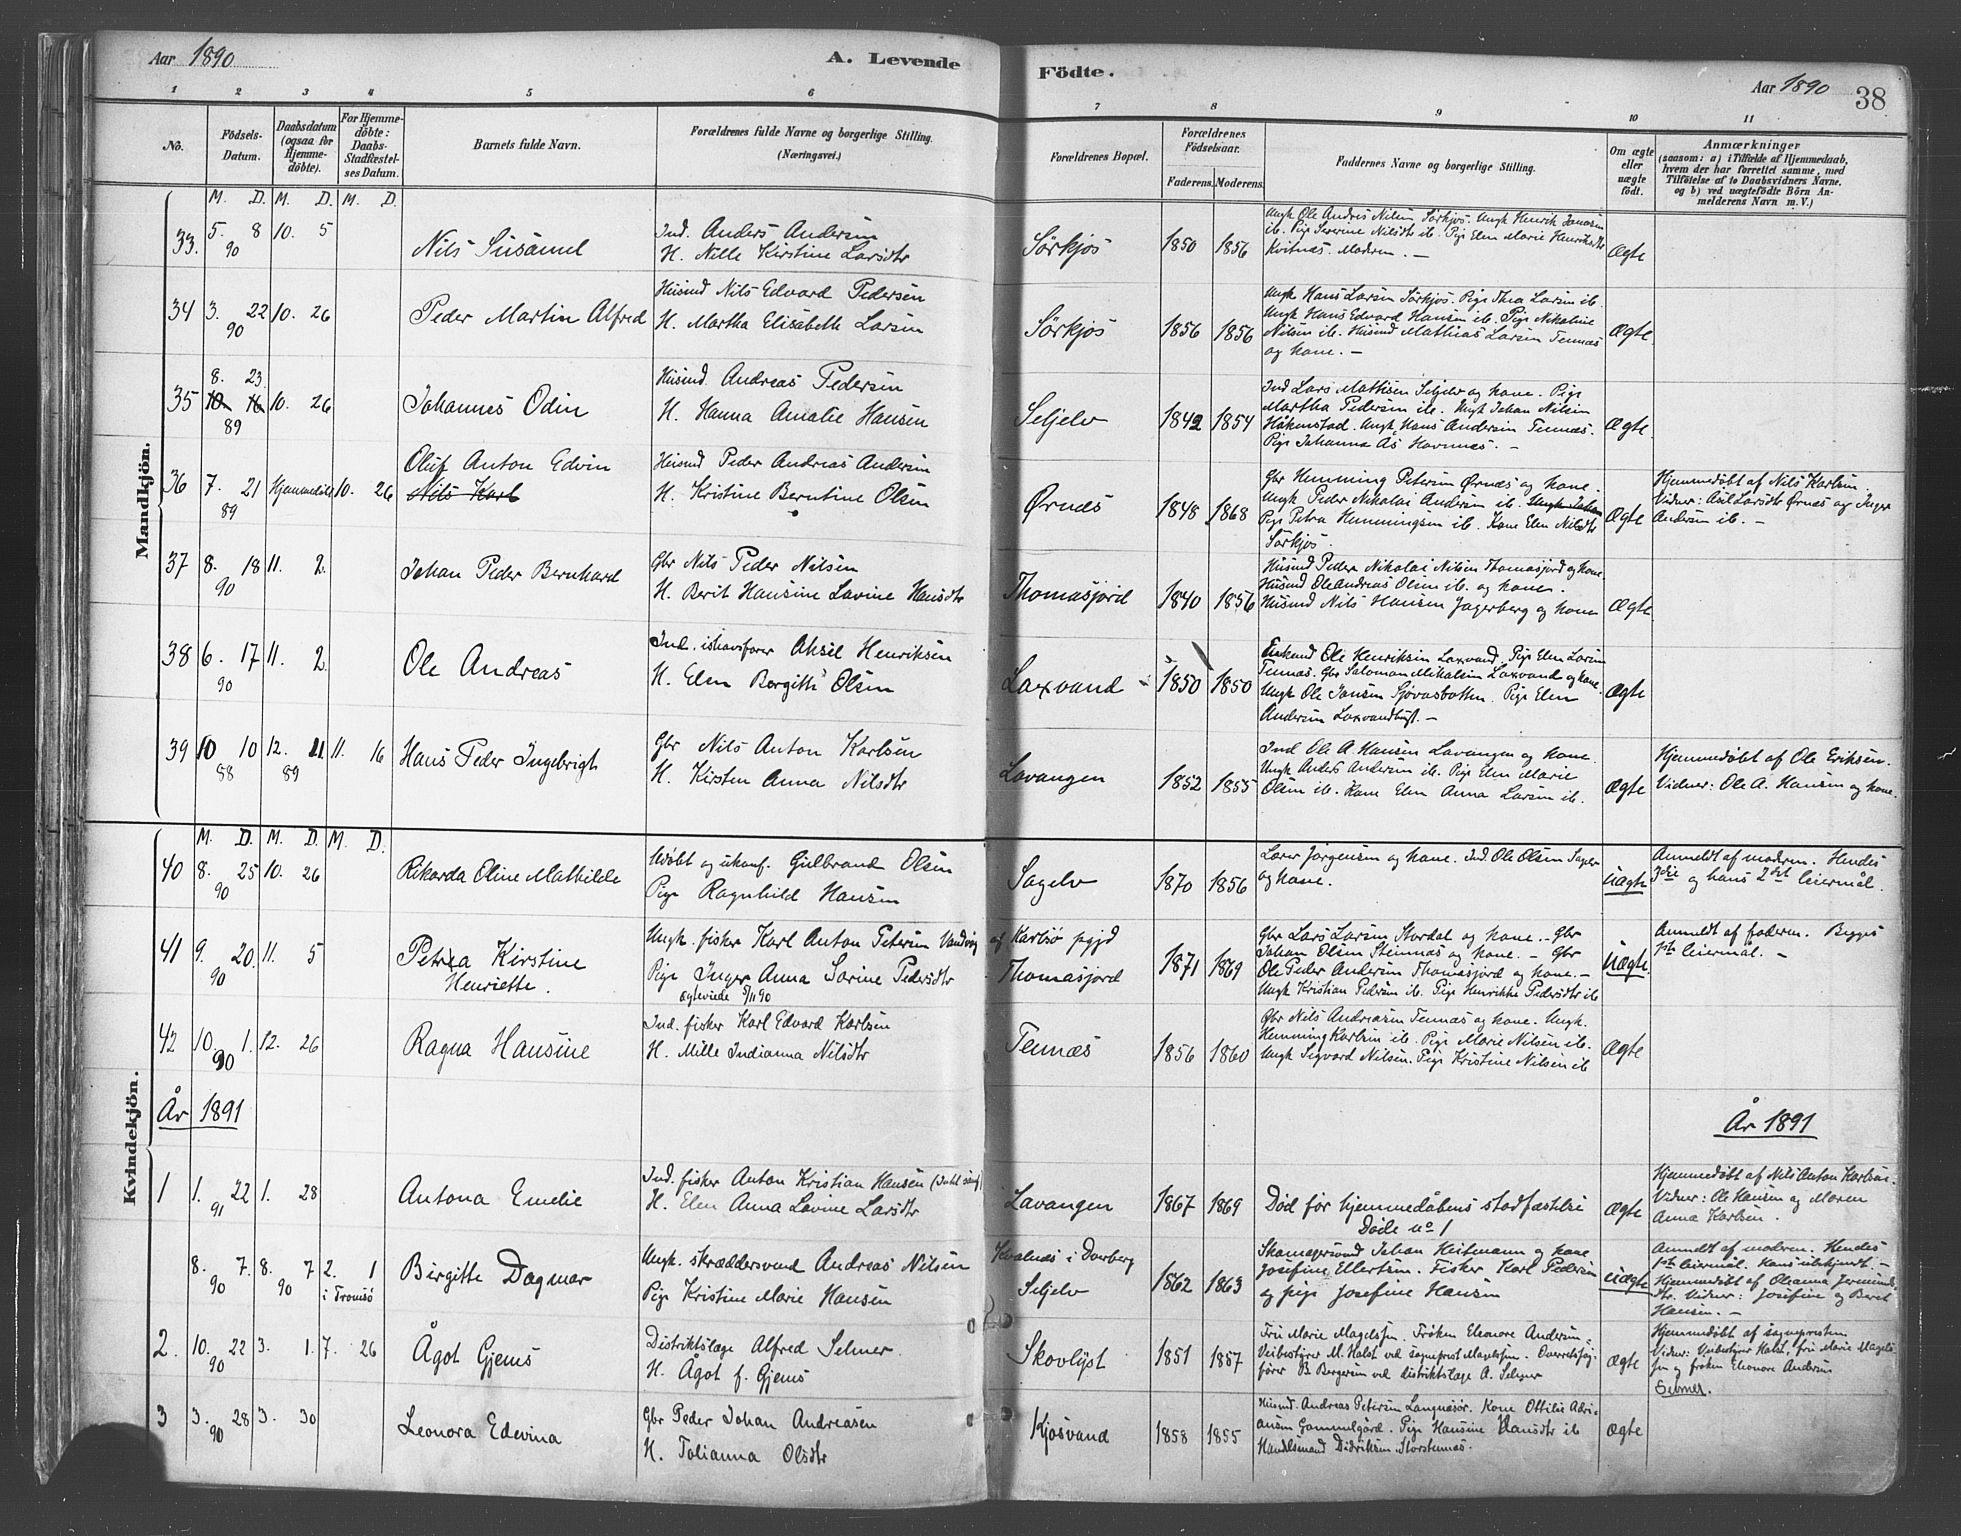 Aar 1890
A. Levende
Födte.
Aar 1890
38
1 2 3 4 5 6 7 8 9 10 11
No.
Födsels-
Datum.
Daabsdatum
(ogsaa for
Hjemme-
döbte).
For Hjemme-
döbte:
Daabs-
Stadfæstel-
ses Datum.
Barnets fulde Navn.
Forældrenes fulde Navne og borgerlige Stilling.
(Næringsvei.)
Forældrenes Bopæl.
Forældrenes
Födselsaar.
Faderens. Moderens.
Faddernes Navne og borgerlige Stilling.
Om ægte
eller
uægte
födt.
Anmærkninger
(saasom: a) i Tilfælde af Hjemmedaab,
hvem der har forrettet samme, med
Tilföielse af to Daabsvidners Navne,
og b) ved uægtefödte Börn An-
melderens Navn m. V.)
Mandkjön.
M. D. M. D. M. D.
33. 5. 8 90 10. 5
Nils Susämel
Ind. Anders Andersen
H. Nille Kirstine Larsdtr
Sørkjos 1850 1856
Ungk Ole Andres Nilsen Sørkjos. Ungk Henrik Jonassen
ib. Pige Severine Nilsdtr ib. Pige Elen Marie Henriksdtr
Kvitnæs. Modren. –
Ægte
34 3. 22 90 10. 26
Peder Martin Alfred
Husmd Nils Edvard Pedersen
H. Martha Elisabeth Larsen
Sørkjos 1856 1856
Ungk Hans Larsen Sørkjos. Pige Thea Larsen ib.
Ungk Hans Edvard Hansen ib. Pige Nikoline
Nilsen ib. Husmd Mathias Larsen Tennæs
og kone. –
Ægte
35 8. 23. 10. 16 89 10. 26
Johannes Odin
Husmd. Andreas Pedersen
H. Hanna Amalie Hansen
Seljelv 1842 1854
Ind Lars Mathisen Seljelv og kone. Pige
Martha Pedersen ib. Ungk Johan Nilsen
Håkenstad. Ungk Hans Andersen Tennæs.
Pige Johanna Ås Havnnæs. –
Ægte
36 7. 21 89 Hjemmedåb 10. 26
Oluf Anton Edvin
Nils Karl
Husmd Peder Andreas Andersen
H. Kristine Berntine Olsen
Ørnæs 1848 1868
Gbr Hemming Petersen Ørnæs og kone.
Ungk Peder Nikolai Andersen ib. Ungk Johan
Pige Petra Hemmingsen ib. Kone Elen Nilsdtr
Sørkjos.
Ægte
Hjemmedøbt af Nils Karlsen.
Vidner: Axel Larsdtr Ørnæs og Inger
Andersen ib. –
37 8. 18 90 11. 2.
Johan Peder Bernhard
Gbr Nils Peder Nilsen
H. Berit Hansine Lavine Hansdtr
Thomasjord 1840 1856
Husmd Peder Nikolai Nilsen Thomasjord og kone.
Husmd Ole Andreas Olsen ib. og kone.
Husmd Nils Hansen Jagerberg og kone
Ægte
38 6. 17 90 11. 2.
Ole Andreas
Ind. ishavsfarer Aksel Henriksen
H. Elen Bergitte Olsen
Laxvand 1850 1850
Enkemd Ole Henriksen Laxvand. Pige Elen Larsen
Tennæs. Gbr Salomon Mikalsen Laxvand og kone.
Ungk Ole Jansen Sjövasbotten. Pige Elen
Andersen Laxvandbugt. –
Ægte
39 10 10 88 12. 11. 89 11. 16
Hans Peder Ingebrigt
Gbr Nils Anton Karlsen
H. Kirsten Anna Nilsdtr
Lavangen 1852 1855
Ind Ole A. Hansen Lavangen og kone.
Ungk Anders Andersen ib. Pige Elen Marie
Olsen ib. Kone Elen Anna Larsen ib.
Ægte
Hjemmedøbt af Ole Eriksen.
Vidner: Ole A. Hansen og kone.
Kvindekjön.
M. D. M. D. M. D.
40 8. 25 90 10. 26
Rikarda Oline Mathilde
Udøbt og ukonf. Gulbrand Olsen
Pige Ragnhild Hansen
Sagelv 1870 1856
Lærer Jørgensen og kone. Ind. Ole Olsen Sagelv
og kone.
Uægte
Anmeldt af modren. Hendes
3die og hans 2det leiermål.
41 9. 20. 90 11. 5
Petra Kirstine
Henriette.
Ungk. fisker Karl Anton Petersen Vandvåg
Pige Inger Anna Sorine Pedersdtr
ægteviede 5/11 90
af Karlsø pgjd
Thomasjord 1871 1869
Gbr Lars Larsen Stordal og kone. – Gbr
Johan Olsen Steinnæs og kone. – Gbr
Ole Peder Andersen Thomasjord og kone. –
Ungk Kristian Pedersen ib. Pige Henrikke Pedersdtr ib
Uægte.
Anmeldt af faderen. Begges
1ste leiermål. –
42 10. 1. 90 12. 26
Ragna Hansine
Ind. fisker Karl Edvard Karlsen
H. Mille Indianna Nilsdtr
Tennæs 1856 1860
Gbr Nils Andreasen Tennæs og kone. Ungk.
Hemming Karlsen ib. Pige Marie Nilsen ib.
Ungk Sigvard Nilsen. Pige Kristine Nilsen ib
Ægte
År 1891
År 1891
1 1. 22 91 1. 28
Antona Emelie
Ind. fisker Anton Kristian Hansen
H. Elen Anna Lovine Larsdtr
Lavangen 1867 1869
Död før hjemmedåbens stadfæstelse
Døde no 1
Ægte
Hjemmedøbt af Nils Anton Karlsen.
Vidner: Ole Hansen og Maren
Anna Karlsen.
8. 7. 90 8. 7 90 2. 1 i Tromsø
Birgitte Dagmar
Ungk. skræddersvend Andreas Nilsen
Pige Kristine Marie Hansen
Kvalnæs i Dverberg
Seljelv 1862 1863
Skomagersvend Johan Heitmann og kone
Josefine Ellertsen. Fisker Karl Pedersen
og pige Josefine Hansen
Uægte
Anmeldt af modren. Hendes
1ste leiermål. Hans ubekjendt. –
Hjemmedøbt af Oleanna Jermund
dtr. Vidner: Josefine og Berit
Hansen. –
2. 10. 22 90 3. 1. 7. 26
Ågot Gjems
Distriktslæge Alfred Selmer
H. Ågot f. Gjems
Skovlyst 1851 1857
Fru Marie Magelssen. Frøken Eleonore Andersen.
Veibestyrer M. Holst ved sogneprest Magelssen. Overretssag-
fører B Bergersen ved distriktslæge A. Selmer
Ægte
Hjemmedøbt af sognepresten
Vidner: Veibestyrer Holst, fru Marie Magels-
sen og frøken Eleonore Andersen
Selmer.
3 3. 28 90 3. 30
Leonora Edevina
Gbr Peder Johan Andreasen
H. Tolianna Olsdtr
Kjosvand 1858 1855
Husmd. Andreas Petersen Langnæsör. Kone Ottilie Adri-
ansen Gammelgård. Pige Hansine Hansdtr ib
Handelsmand Didriksen Storstennæs.
Ægte